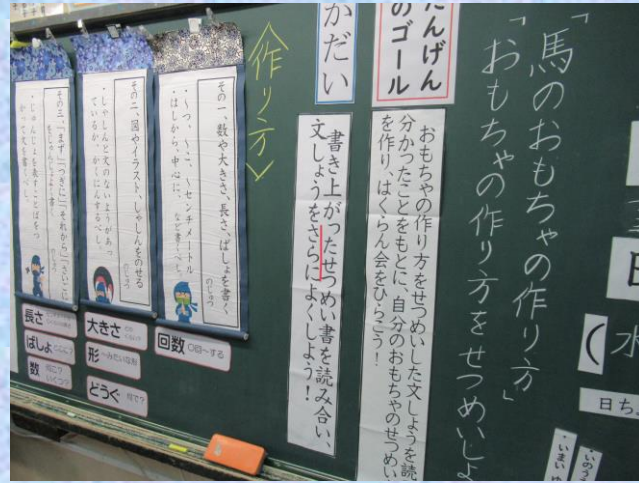 日
水
日ち
「馬のおもちゃの作り方」
「おもちゃの作り方をせつめいしよ
たんげん
のゴール
おもちゃの作り方をせつめいした文しょうを読
分かったことをもとに、自分のおもちゃのせつめい
を作り、はくらん会をひらこう！
かだい
書き上がったせつめい書を読み合い、
文しょうをさらによくしよう！
〈作り方〉
その一、数や大きさ、長さ、ばしょを書く、
のじゅつ
〜つ、〜こ、〜センチメートル
はしから、中心に、など書くべし。
その二、図やイラスト、しゃしんをのせる
のじゅつ
しゃしんと文のないようがあっ
ているか、かくにんするべし。
その三、「まず」「つぎに」「それから」「さいごに」
のじゅつ
じゅんじょを表すことばをつ
かって文を書くべし。
回数 〇回〜する
大きさ
形 〜みたいな形
どうぐ 何で？
長さ
ばしょ どこに？
数 何こ？
いくつ？